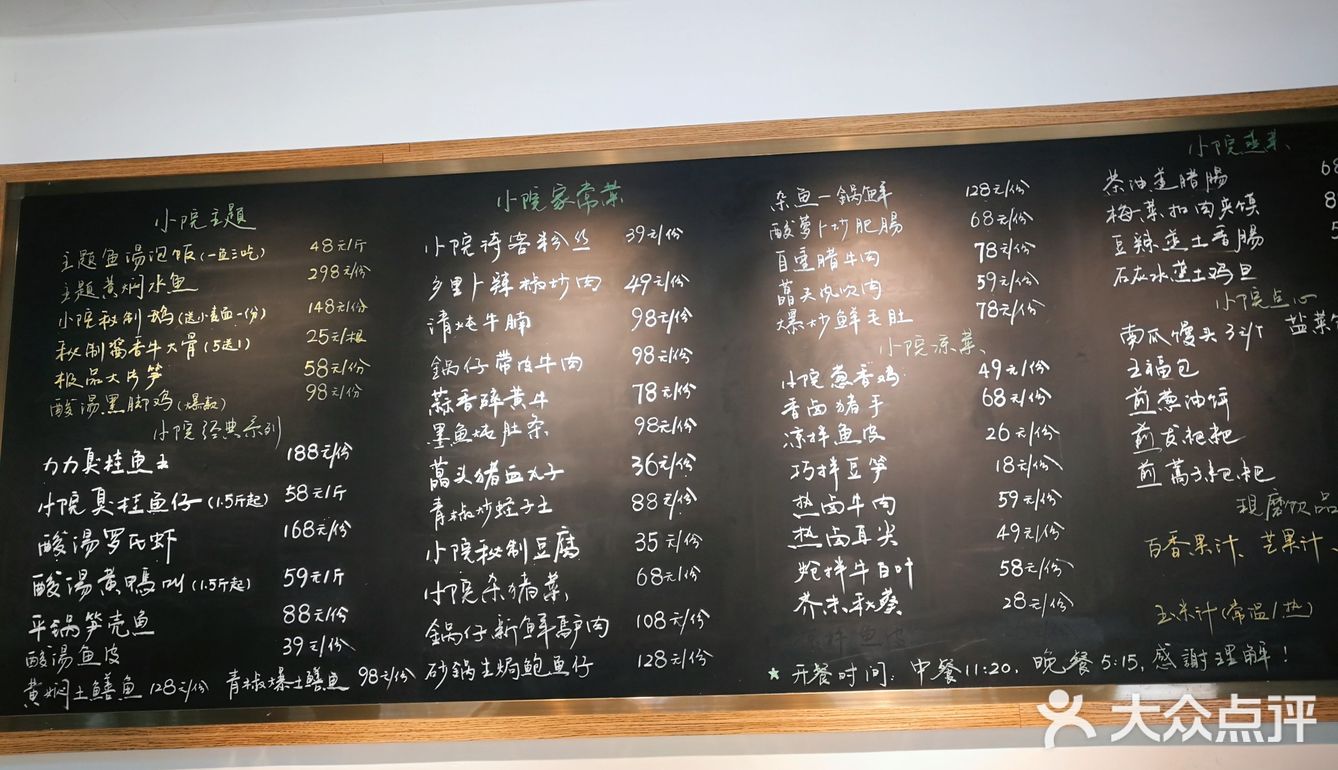 小院主题
主题鱼湯泡饭(一鱼三吃) 48元/斤
主题黄焖水鱼 298元/份
小院秘制鹅(送小麦面一份) 148元/份
秘制酱香牛大骨(5送1) 25元/根
极品大片笋 58元/份
酸湯黑脚鸡(爆款) 98元/份
小院经典系列
力力臭桂鱼王 188元/份
小院臭桂鱼仔(1.5斤起) 58元/斤
酸湯罗氏虾 168元/份
酸湯黄鴨叫(1.5斤起) 59元/斤
平锅笋壳鱼 88元/份
酸湯鱼皮 39元/份
黄焖土鳝鱼 128元/份 青椒爆土鳝鱼 98元/份
小院家常菜
小院待客粉丝 39元/份
乡里卜辣椒炒肉 49元/份
清炖牛腩 98元/份
鍋仔带皮牛肉 98元/份
蒜香碎黄牛 78元/份
墨鱼炖肚条 98元/份
藠头猪血丸子 36元/份
青椒炒蛏子王 88元/份
小院秘制豆腐 35元/份
小院杀猪菜 68元/份
鍋仔新鲜驴肉 108元/份
砂鍋生焗鲍鱼仔 128元/份
杂鱼一鍋鲜 128元/份
酸萝卜炒肥腸 68元/份
自熏腊牛肉 78元/份
藠头皮吹肉 59元/份
爆炒鲜毛肚 78元/份
小院凉菜
小院葱香鸡 49元/份
香卤猪手 68元/份
凉拌鱼皮 26元/份
巧拌豆笋 18元/份
热卤牛肉 59元/份
热卤耳尖 49元/份
炝拌牛百叶 58元/份
芥末秋葵 28元/份
★开餐时间: 中餐11:20, 晚餐5:15, 感謝理解!
小院蒸菜
茶油蒸腊腸 68
梅菜扣肉夹馍 8
豆辣蒸土香腸 5
石灰水蒸土鸡旦
小院点心
南瓜馒头3元/个 盐菜
五福包
煎葱油饼
煎发粑粑
煎蒿子粑粑
现磨饮品
百香果汁、芒果汁
玉米汁(常温/热)
大众点评